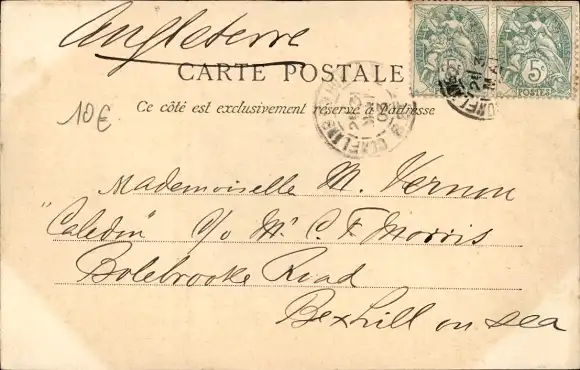 Angleterre
CARTE POSTALE
10€
Ce côté est exclusivement réservé à l'adresse
5c
POSTES
Mademoiselle M. Vernon
"Caledon" c/o Mr C. F. Morris
Bolebrooke Road
Bexhill on sea